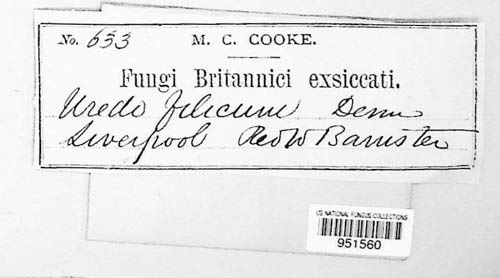 No. 653 M. C. COOKE.
Fungi Britannici exsiccati.
Uredo filicum Desm
Liverpool Rev W Banister
US NATIONAL FUNGUS COLLECTIONS
951560